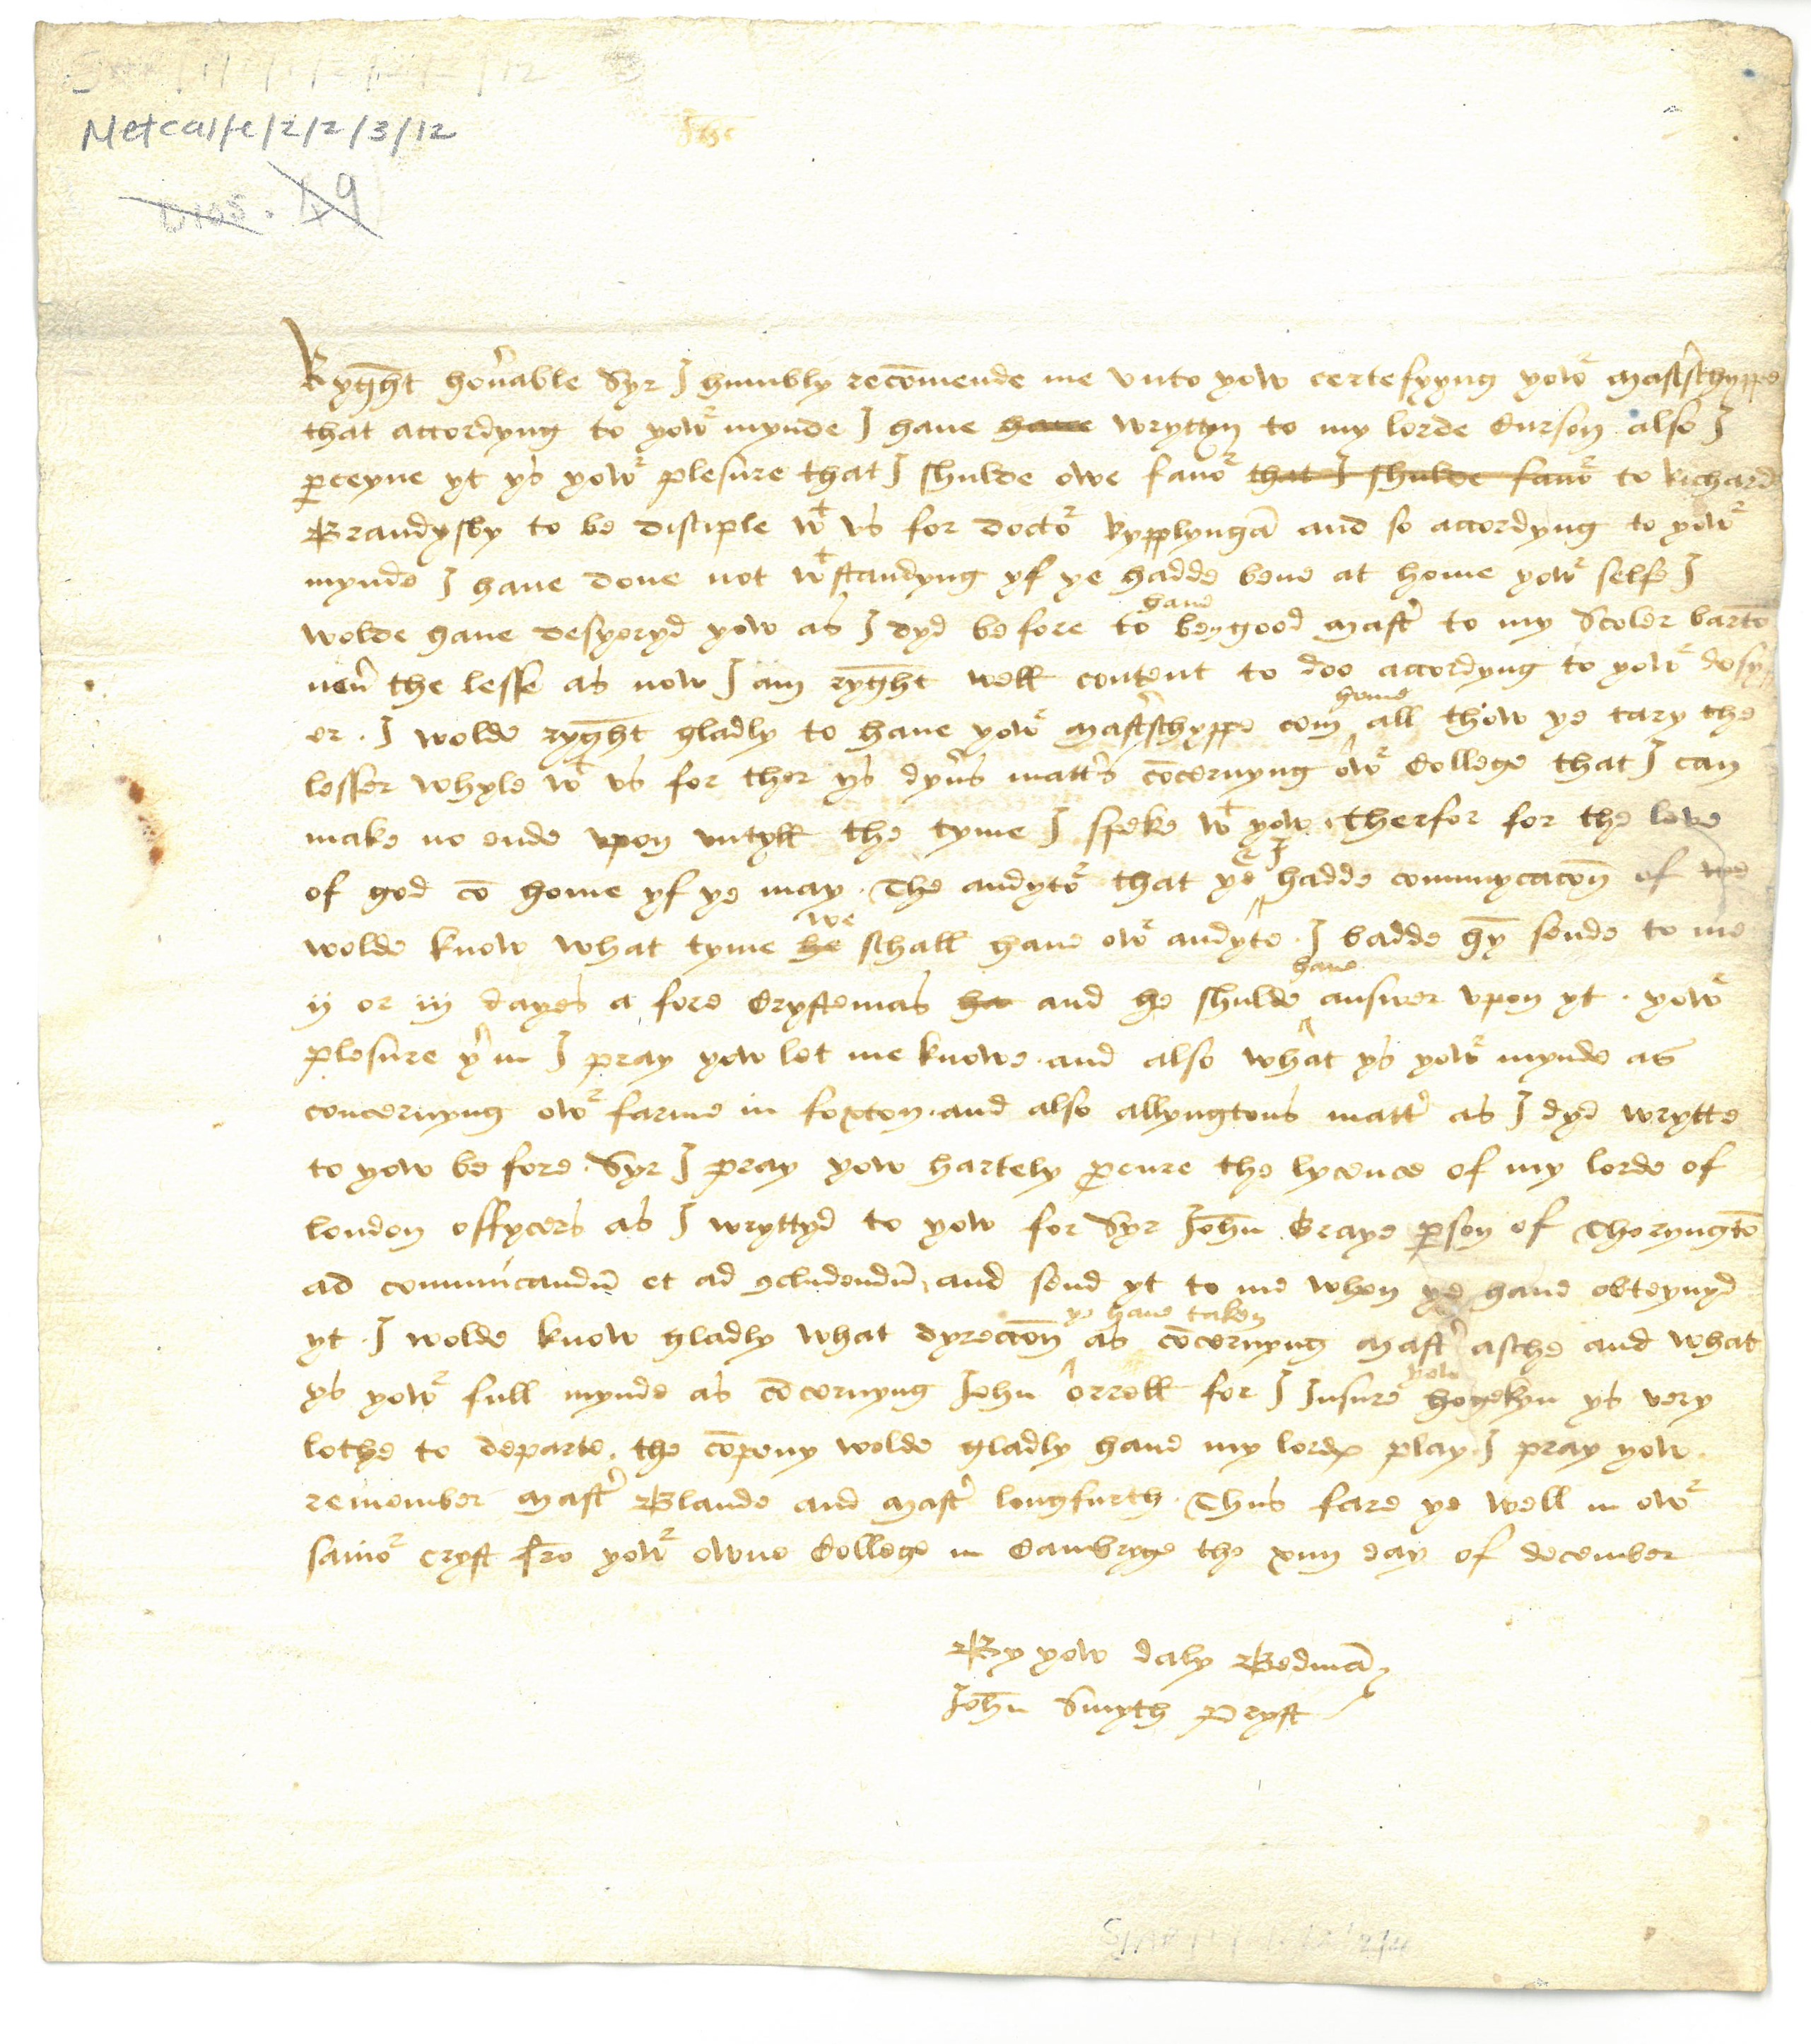 Metcalfe/2/2/3/12
Ihc
Ryghht honable Syr I humbly recomende me vnto yow certefyyng yowr mastschyppe
that accordyng to yowr mynde I haue haue wryttyn to my lorde Curson also I
pceyue yt ys yowr plesure that I shulde owe fauor that I shulde fauor to Richard
Brandysby to be disciple wt vs for doctor kypplynga and so accordyng to yowr
mynde I haue done not wtstandyng yf ye hadde bene at home yowr selfe I
hand
wolde haue desyeryd yow as I dyd be fore to ben good mastr to my Scoler barto
neu the lesse as now I am ryghht well content to doo accordyng to yowr desy
home
er . I wolde ryghht gladly to haue yowr mastschyppe com all thow ye tary the
lesser whyle wt vs for ther ys dyus matts cocernyng owr College that I can
make no ende vpon vntyll the tyme I speke wt yow . therfor for the love
& I
of god co home yf ye may . The audytor that ye hadde comunycacon of
we
wolde know what tyme he schall haue owr audyte . I badde hy sende to me
haue
ij or iij dayes a fore Crystemas ha and he shulde answer vpon yt . yowr
plesure yrin I pray yow let me knowe . and also what ys yowr mynde as
concernyng owr farme in foxton . and also allyngtons mattr as I dyd wrytte
to yow be fore . Syr I pray yow hartely pcure the lycence of my lorde of
london offycers as I wryttyd to yow for Syr John Graye pson of Theryngto
ad comunicandu et ad 9cludendu, and send yt to me when ye haue obteynyd
ye haue taken
yt . I wolde know gladly what dyreccon as cocernyng mastr asche and what
yow
ys yowr full mynde as cocernyng John orrell for I Insure hogekyn ys very
lothe to departe . the copeny wolde gladly haue my lordes play . I pray yow
remember mastr Blande and mastr longfurth . Thus fare ye well in owr
sauior cryst fro yowr owne College in Cambryge the xiiij day of december
By yow daly Bedma
John Smyth Pryst